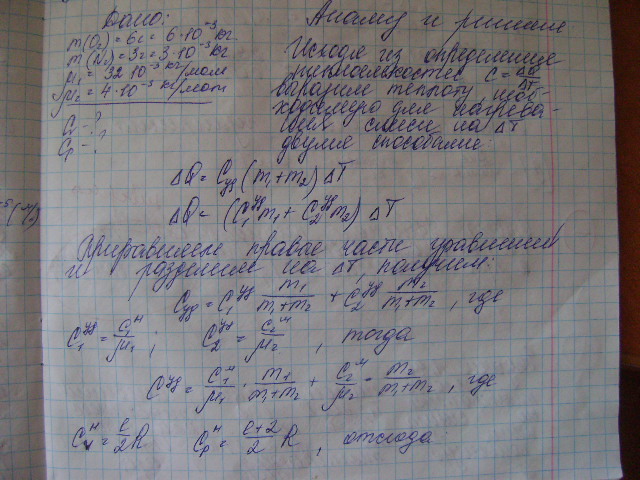 Дано:
m(O₂) = 6г = 6·10⁻³ кг
m(N₂) = 3г = 3·10⁻³ кг
μ₁ = 32·10⁻³ кг/моль
μ₂ = 4·10⁻³ кг/моль
Cv - ?
Cp - ?
Анализ и решение
Исходя из определения
теплоемкостей C = ΔQ/ΔT
выразим теплоту, необ-
ходимую для нагрева-
ния смеси на ΔT
двумя способами:
ΔQ = Cуд (m₁+m₂) ΔT
ΔQ = (C₁ᵘᵈ m₁ + C₂ᵘᵈ m₂) ΔT
Приравняем правые части уравнений
и разделив на ΔT, получим:
Cуд = C₁ уд m₁/(m₁+m₂) + C₂ уд m₂/(m₁+m₂), где
C₁ уд = C₁ м/μ₁; C₂ уд = C₂ м/μ₂, тогда
C уд = C₁ м/μ₁ · m₁/(m₁+m₂) + C₂ м/μ₂ · m₂/(m₁+m₂), где
Cv м = i/2 R Cp м = (i+2)/2 R, отсюда